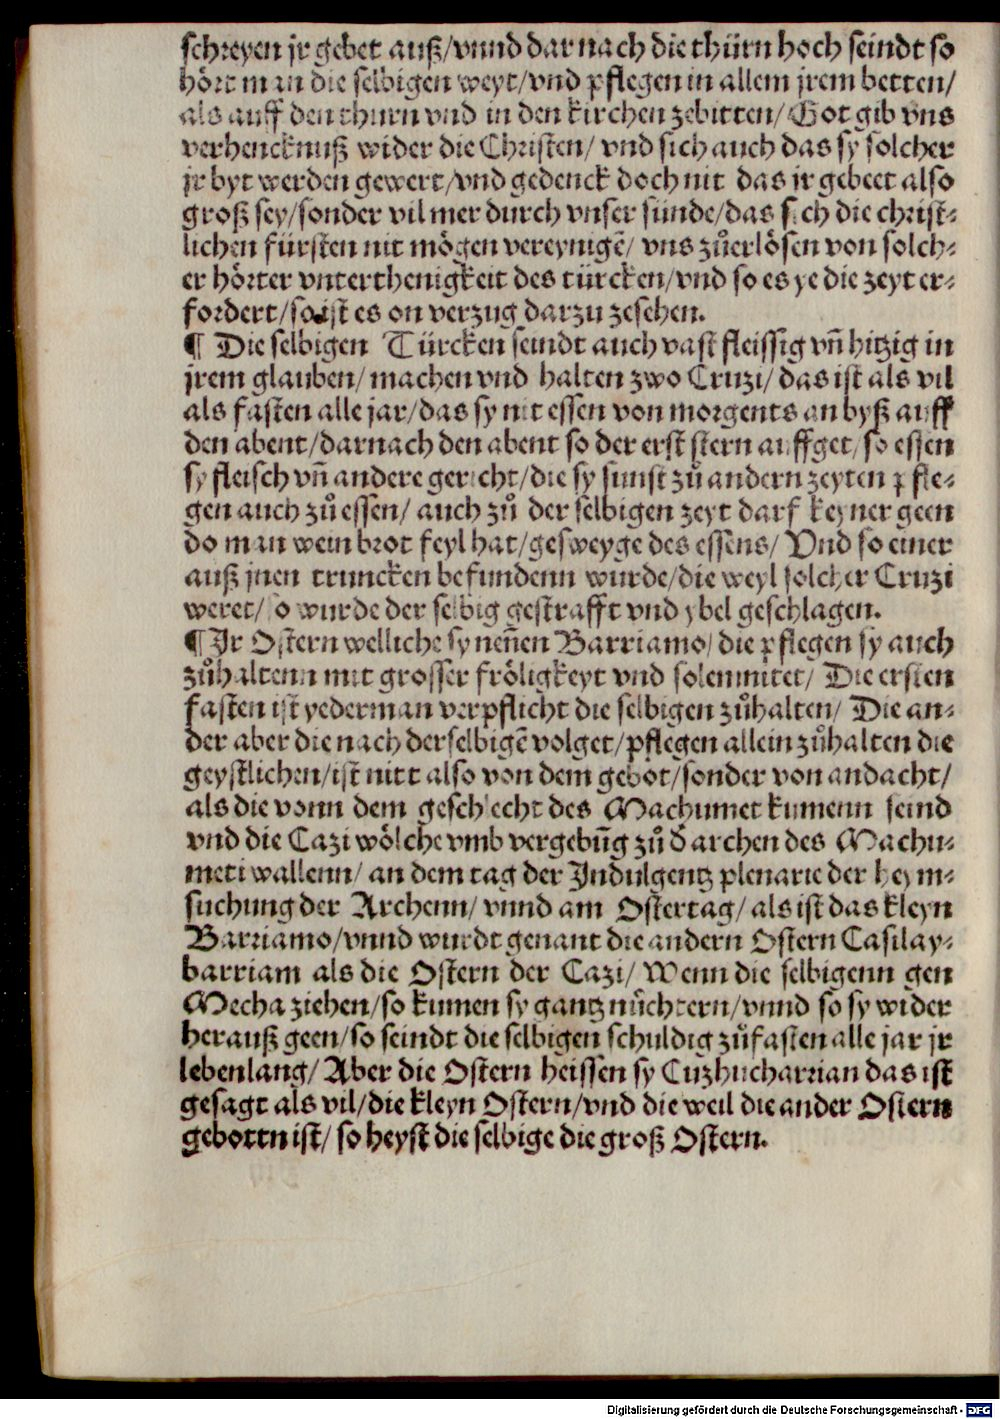 schreyen jr gebet auß/vnnd dar nach die thürn hoch seindt so
hört man die selbigen weyt/vnd pflegen in allem jrem betten/
als auff den thurn vnd in den kirchen zebitten/Got gib vns
verhencknuß wider die Christen/ vnd sich auch das sy solcher
jr byt werden gewert/vnd gedenck doch nit das ir gebeet also
groß sey/sonder vil mer durch vnser sünde/das sich die christ⸗
lichen fürsten nit mögen vereynigē/ vns zůerlösen von solch⸗
er hörter vnterthenigkeit des türcken/vnd so es ye die zeyt er⸗
fordert/so ist es on verzug darzu zesehen.
¶ Die selbigen Türcken seindt auch vast fleissig vñ hitzig in
jrem glauben/machen vnd halten zwo Cruzi/das ist als vil
als fasten alle jar/das sy nit essen von morgents an byß auff
den abent/darnach den abent so der erst stern auffget/so essen
sy fleisch vñ andere gericht/die sy sunst zů andern zeyten pfle⸗
gen auch zů essen/ auch zů der selbigen zeyt darf keyner geen
do man wein brot feyl hat/gesweyge des essens/ Vnd so einer
auß jnen truncken befundenn wurde/die weyl solcher Cruzi
weret/so wurde der selbig gestrafft vnd ybel geschlagen.
¶ Jr Ostern welliche sy neñen Barriamo/die pflegen sy auch
zůhaltenn mit grosser fröligkeyt vnd solemnitet/ Die ersten
fasten ist yederman verpflicht die selbigen zůhalten/ Die an⸗
der aber die nach derselbigē volget/pflegen allein zůhalten die
geystlichen/ist nitt also von dem gebot/sonder von andacht/
als die vonn dem geschlecht des Machumet kumenn seind
vnd die Cazi wölche vmb vergebūg zů d̄ archen des Machu⸗
meti wallenn/ an dem tag der Indulgentz plenarie der heym⸗
suchung der Archenn/ vnnd am Ostertag/ als ist das kleyn
Barriamo/vnnd wurdt genant die andern Ostern Casilay⸗
barriam als die Ostern der Cazi/ Wenn die selbigenn gen
Mecha ziehen/so kumen sy gantz nůchtern/vnnd so sy wider
herauß geen/so seindt die selbigen schuldig zůfasten alle jar jr
lebenlang/ Aber die Ostern heissen sy Cuzhucharrian das ist
gesagt als vil/die kleyn Ostern/vnd die weil die ander Ostern
gebottn ist/ so heyst die selbige die groß Ostern.
Digitalisierung gefördert durch die Deutsche Forschungsgemeinschaft - DFG